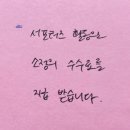 서포터즈 활동으로
소정의 수수료를
지급 받습니다.